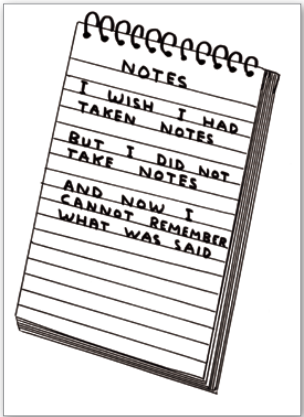 NOTES
I WISH I HAD
TAKEN NOTES
BUT I DID NOT
TAKE NOTES
AND NOW I
CANNOT REMEMBER
WHAT WAS SAID